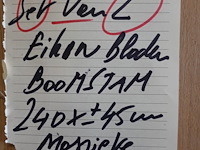 Set Van 2
Eiken Bladen
BOOMSTAM
240 x ± 45 cm
Massieke